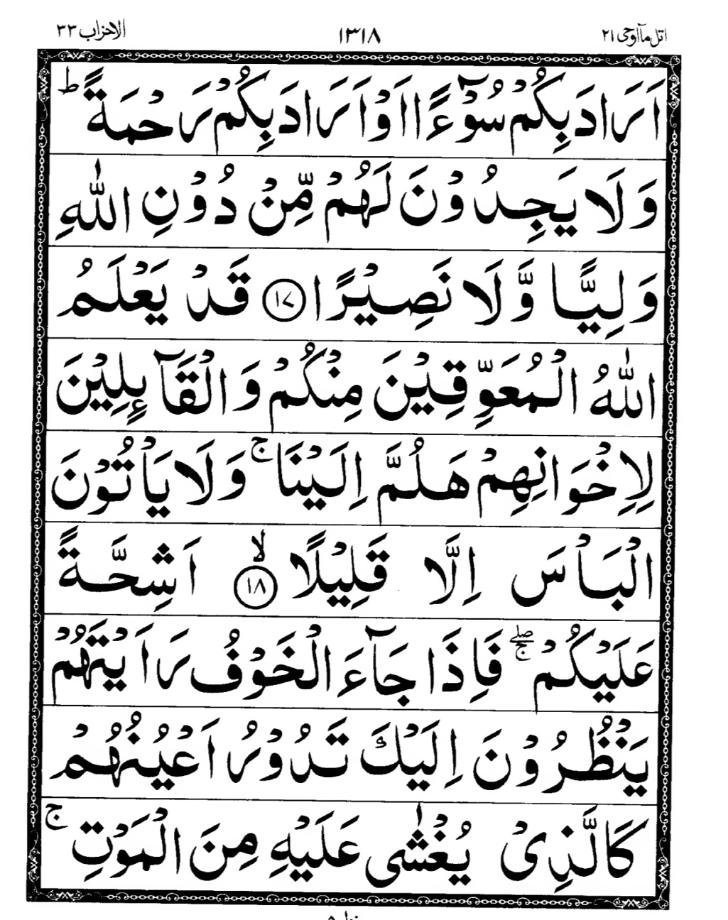 الاحزاب ٣٣
١٣١٨
اتل مآ اوحی ٢١
اَرَادَ بِكُمْ سُوْٓءًا اَوْ اَرَادَ بِكُمْ رَحْمَةً ؕ
وَلَا يَجِدُوْنَ لَهُمْ مِّنْ دُوْنِ اللّٰهِ
وَلِيًّا وَّلَا نَصِيْرًا ﴿١٧﴾ قَدْ يَعْلَمُ
اللّٰهُ الْمُعَوِّقِيْنَ مِنْكُمْ وَالْقَآىِٕلِيْنَ
لِاِخْوَانِهِمْ هَلُمَّ اِلَيْنَا ۚ وَلَا يَاْتُوْنَ
الْبَاْسَ اِلَّا قَلِيْلًا ۙ﴿١٨﴾ اَشِحَّةً
عَلَيْكُمْ ۖۚ فَاِذَا جَآءَ الْخَوْفُ رَاَيْتَهُمْ
يَنْظُرُوْنَ اِلَيْكَ تَدُوْرُ اَعْيُنُهُمْ
كَالَّذِىْ يُغْشٰى عَلَيْهِ مِنَ الْمَوْتِ ۚ